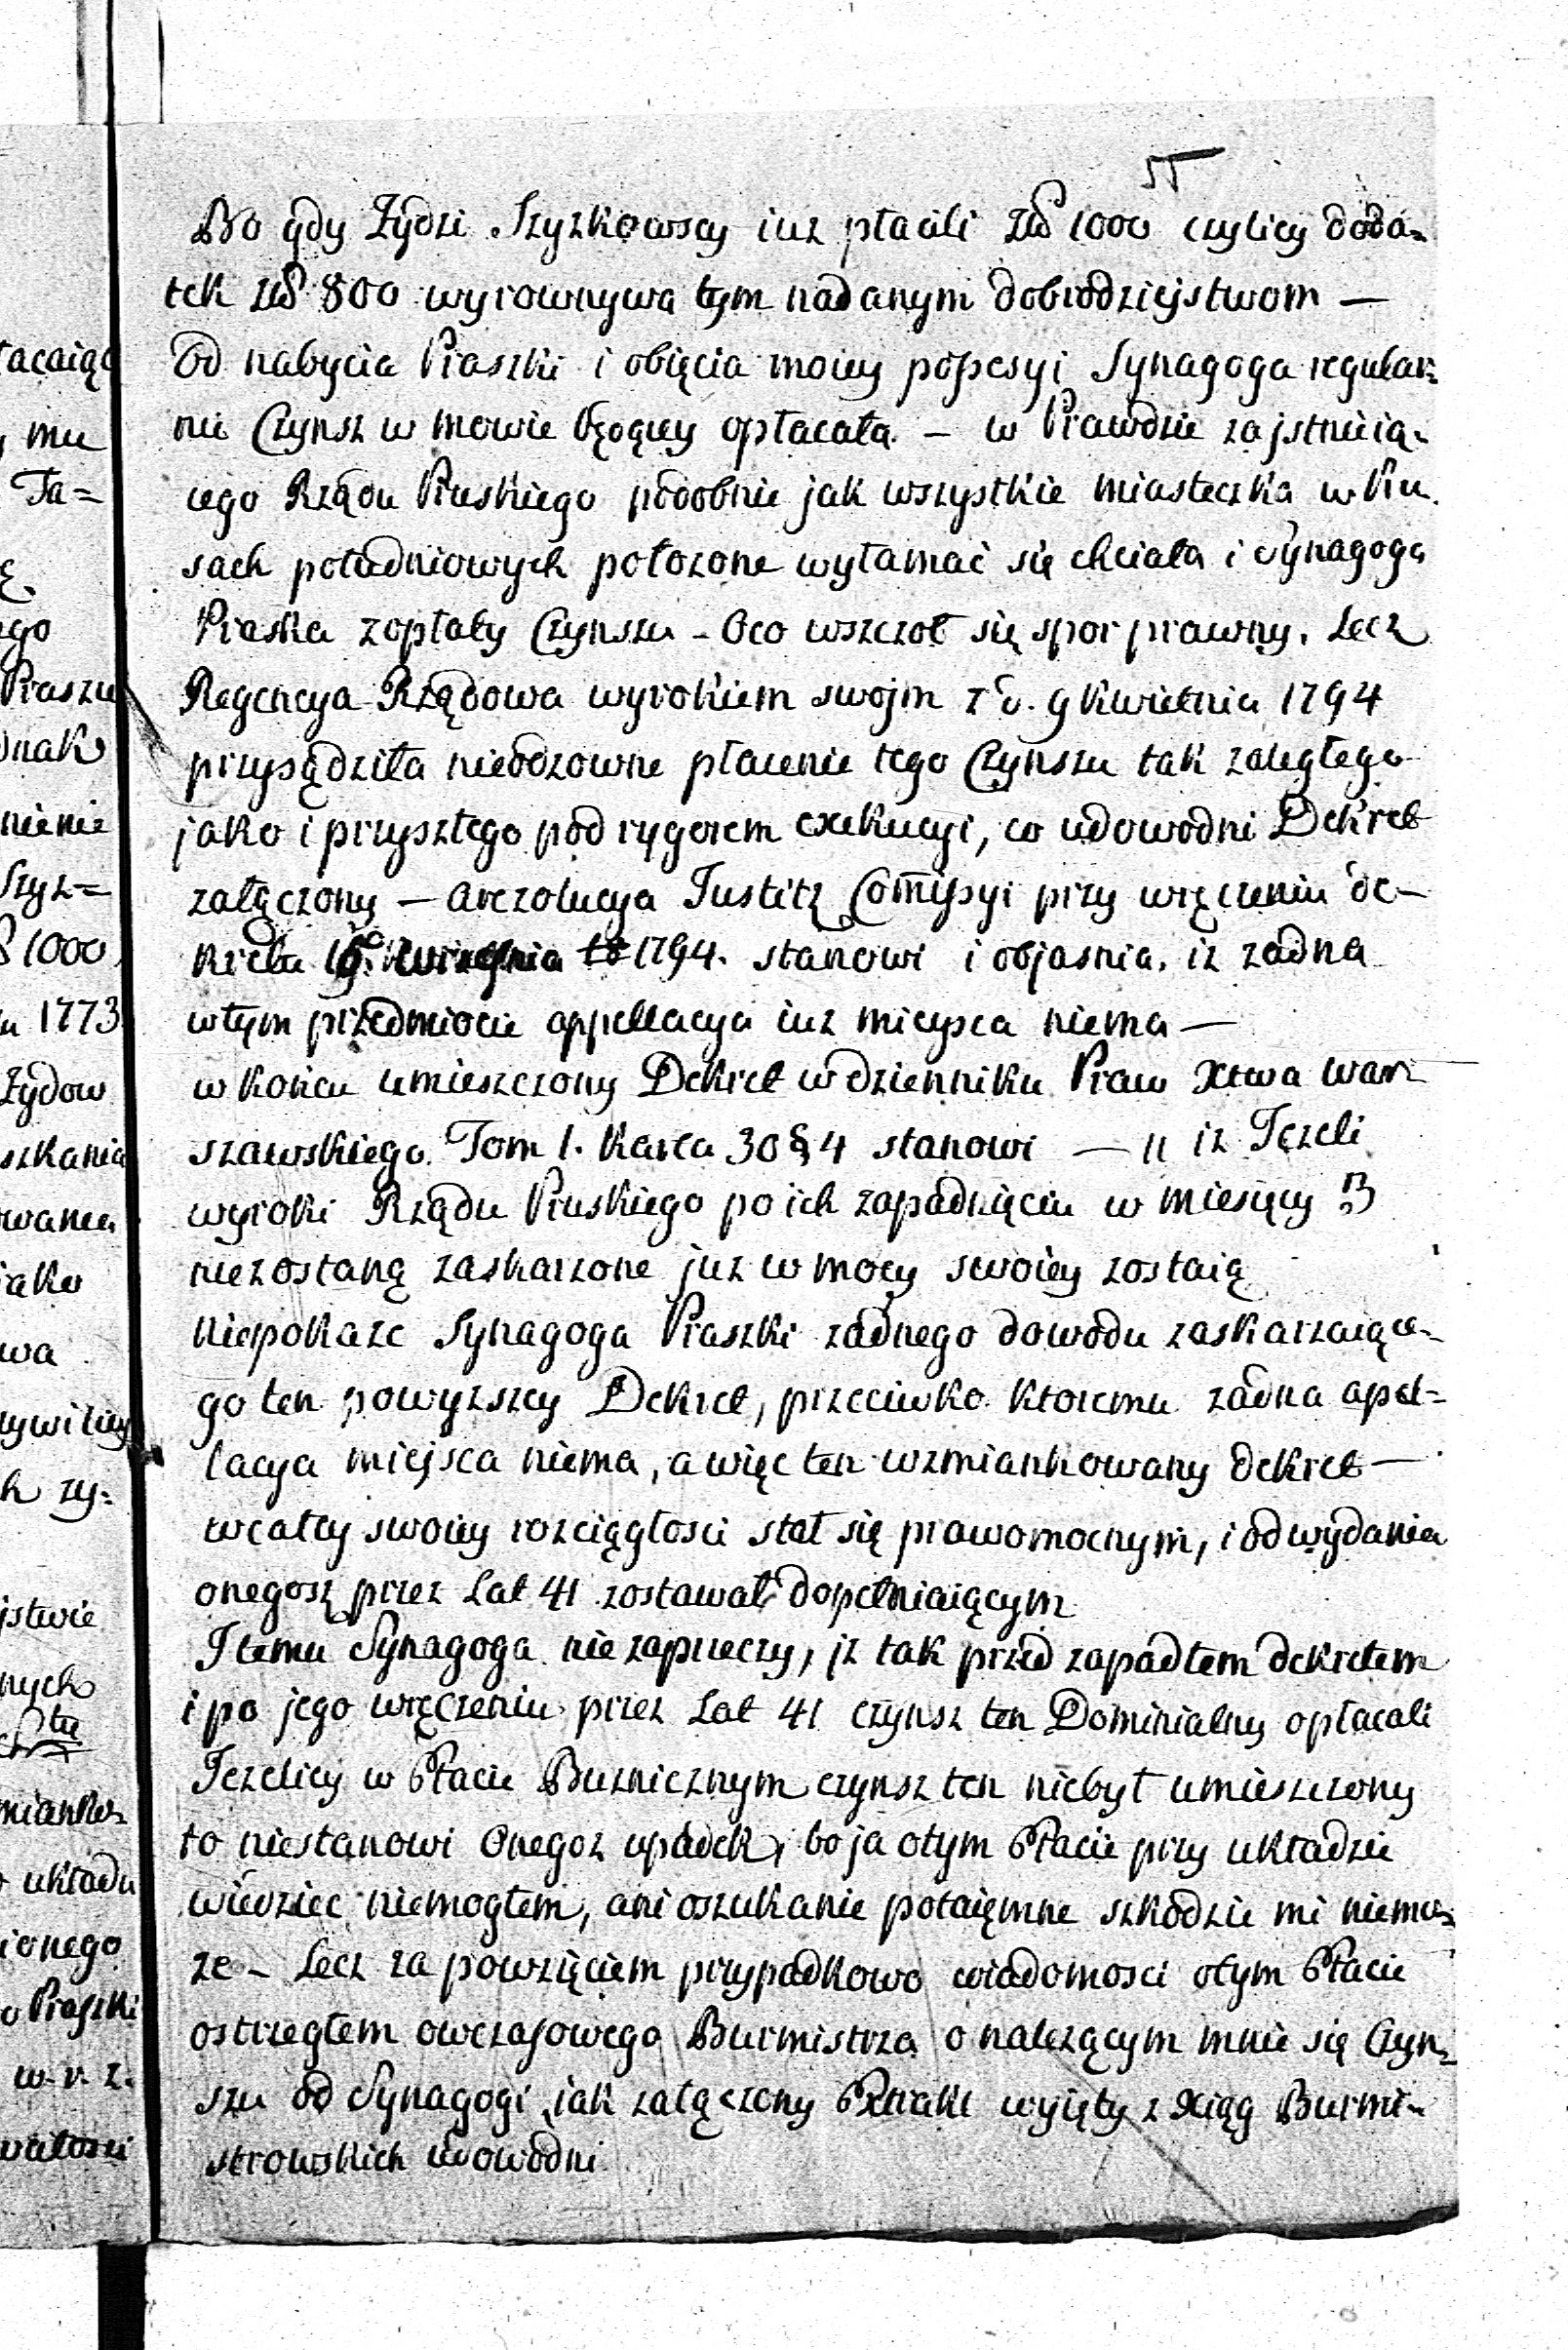 55
Bo gdy Żydzi Szyzkowscy iuz płacili Złł 1000 czylicy doda=
tek złł 800 wyrownywa tym nadanym dobrodziejstwom —
Od nabycia Praszki i obięcia moiey possesyi Synagoga regular=
nie Czynsz w mowie będący opłacała — w Prawdzie zajstnieią=
cego Rządu Pruskiego podobnie jak wszystkie miasteczka w Pru=
sach południowych położone wyłamać się chciała i Synagoga
Praska zopłaty Czynszu — Oco wszczoł się spor prawny. Lecz
Regencya Rządowa wyrokiem swojm z d. 9 Kwietnia 1794
przysądziła nieodzowne płacenie tego Czynszu tak zaległego
jako i przyszłego pod rygorem exekucyi, co udowodni Dekret
załączony — a rezolucya Justitz Commissyi przy wręczeniu de=
kretu 1794. stanowi i objasnia, iz zadna
wtym przedmiocie appellacya iuz mieysca niema —
w końcu umieszczony Dekret w dzienniku Praw Xtwa War=
szawskiego Tom 1. Karta 30 § 4 stanowi — „ iz Jeżeli
wyroki Rządu Pruskiego po ich zapadnięciu w miesięcy 3
niezostaną zaskarzone juz w mocy swoiey zostaią
Niepokaze Synagoga Praszki zadnego dowodu zaskarzaiące=
go ten powyzszy Dekret, przeciwko ktoremu zadna apel=
lacya miejsca niema, a więc ten wzmiankowany dekret —
wcałey swoiey rozciągłosci stał się prawomocnym, i od wydania
onegosz przez Lat 41 zostawał dopełniaiącym
I temu Synagoga nie zaprzeczy, jz tak przed zapadłem dekretem
i po jego wręczeniu przez Lat 41 czynsz ten Dominialny opłacali
Jezelicy w Etacie Buznicznym czynsz ten niebył umieszczony
to niestanowi Onegoz upadek, bo ja otym Etacie przy układzie
wiedziec niemogłem, ani oszukanie potaięmne szkodzic mi niemo=
ze — Lecz za powzięciem przypadkowo wiadomosci otym Etacie
ostrzegłem owczasowego Burmistrza o nalezącym mnie się Czyn=
szu od Synagogi jak załączony Extrakt wyięty z Xiąg Burmi=
strowskich udowodni